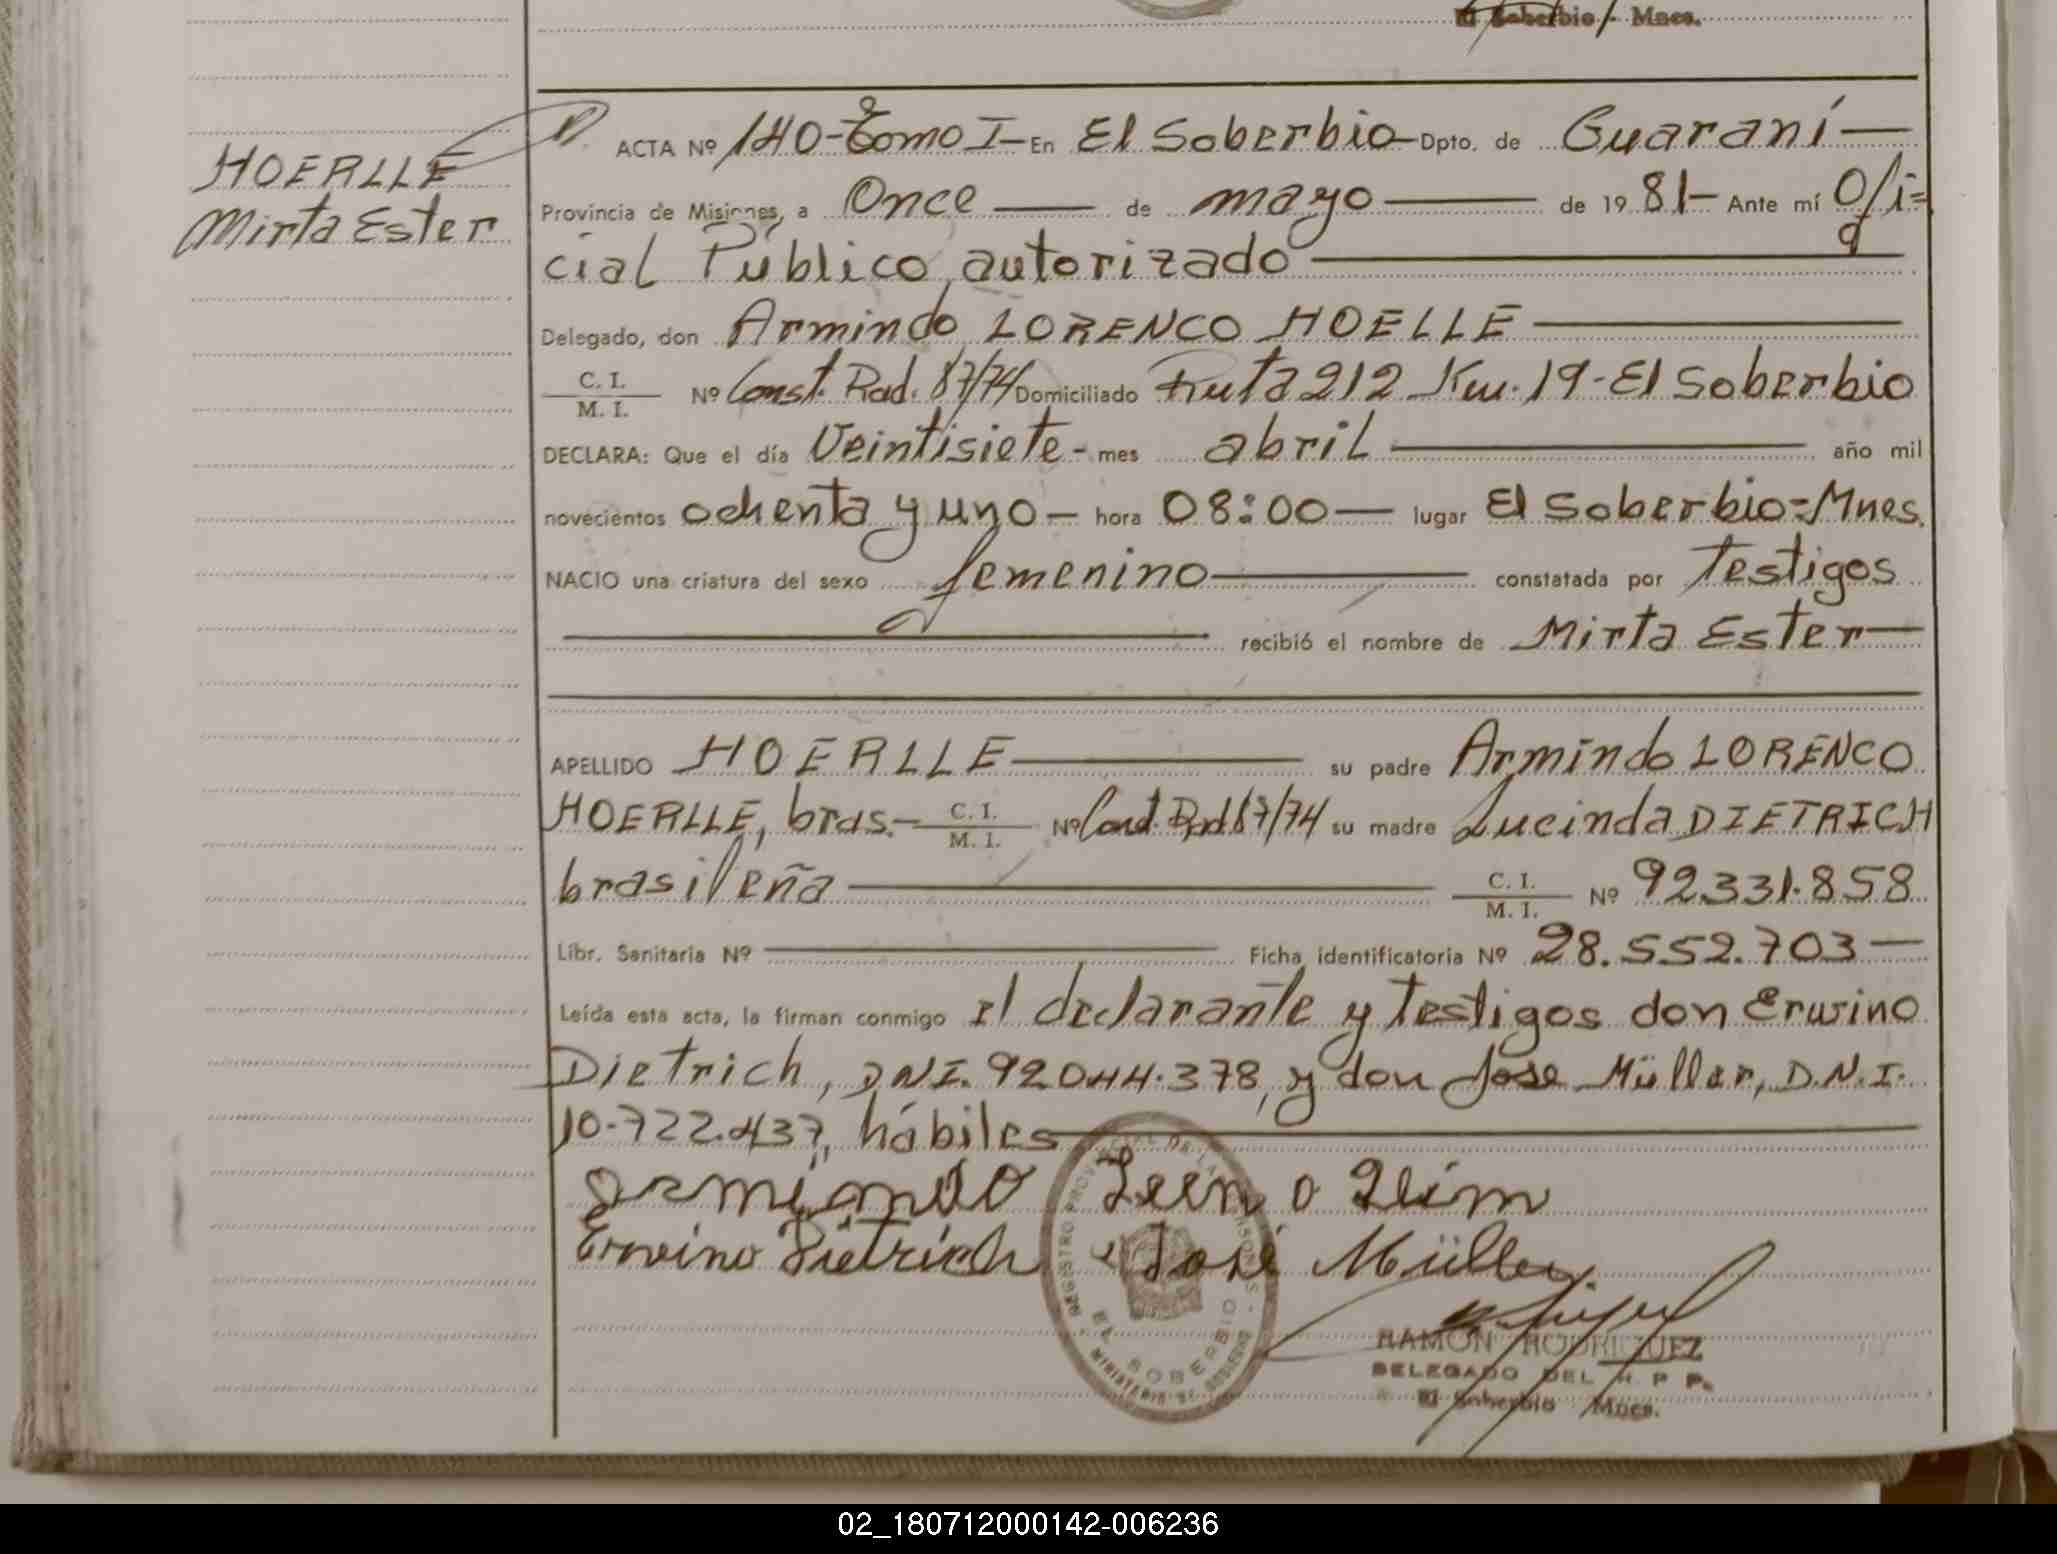 El Soberbio - Mnes.
HOERLLE
Mirta Ester
ACTA Nº 140-Tomo I- En El Soberbio- Dpto. de Guaraní—
Provincia de Misiones, a Once — de mayo — de 19 81- Ante mí Ofi=
cial Público autorizado —
Delegado, don Armindo LORENCO HOELLE —
C. I.
M. I. Nº Const. Rad. 87/74 Domiciliado Ruta 212 Km. 19- El Soberbio
DECLARA: Que el día Veintisiete - mes abril — año mil
novecientos ochenta y uno — hora 08:00 — lugar El Soberbio=Mnes.
NACIO una criatura del sexo femenino — constatada por Testigos
— recibió el nombre de Mirta Ester —
APELLIDO HOERLLE — su padre Armindo LORENCO
HOERLLE, bras.- C. I. M. I. Nº Const. Rad. 87/74 su madre Lucinda DIETRICH
brasileña — C. I. M. I. Nº 92.331.858
Libr. Sanitaria Nº — Ficha identificatoria Nº 28.552.703 —
Leída esta acta, la firman conmigo el declarante y testigos don Erwino
Dietrich, DNI. 92.044.378, y don Jose Müller, D.N.I.
10.722.437, hábiles —
Ervino Dietrich José Müller
REGISTRO PROVINCIAL DE LAS PERSONAS
EL SOBERBIO
RAMON RODRIGUEZ
DELEGADO DEL R. P. P.
El Soberbio Mnes.
02_180712000142-006236